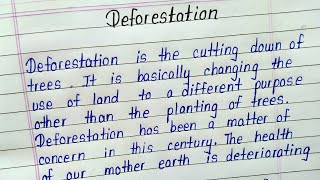 Deforestation
Deforestation is the cutting down of
trees. It is basically changing the
use of land to a different purpose
other than the planting of trees.
Deforestation has been a matter of
concern in this century. The health
of our mother earth is deteriorating